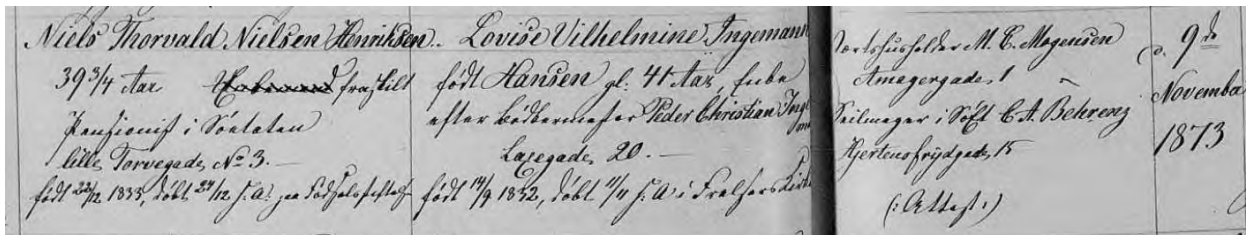 Niels Thorvald Nielsen Henriksen..
39 3/4 Aar Enkemand fraskilt
Pensionist i Söetaten
lille Torvegade No 3. –
født 22/12 1833, døbt 27/12 s. A. paa Födselsstiftelsen
Lovise Vilhelmine Ingemann
født Hansen gl: 41 Aar, Enke
efter Bödkermester Peder Christian Ingemann
Laxegade, 20. –
født 14/9 1832, döbt 11/11 s. A. i Frelsers Kirke
Værtshusholder M. C. Mogensen
Amagergade, 1
Seilmager i Søft C. A. Behrenz
Hjertensfrydgade, 15
(: Attest :)
d. 9de
November
1873